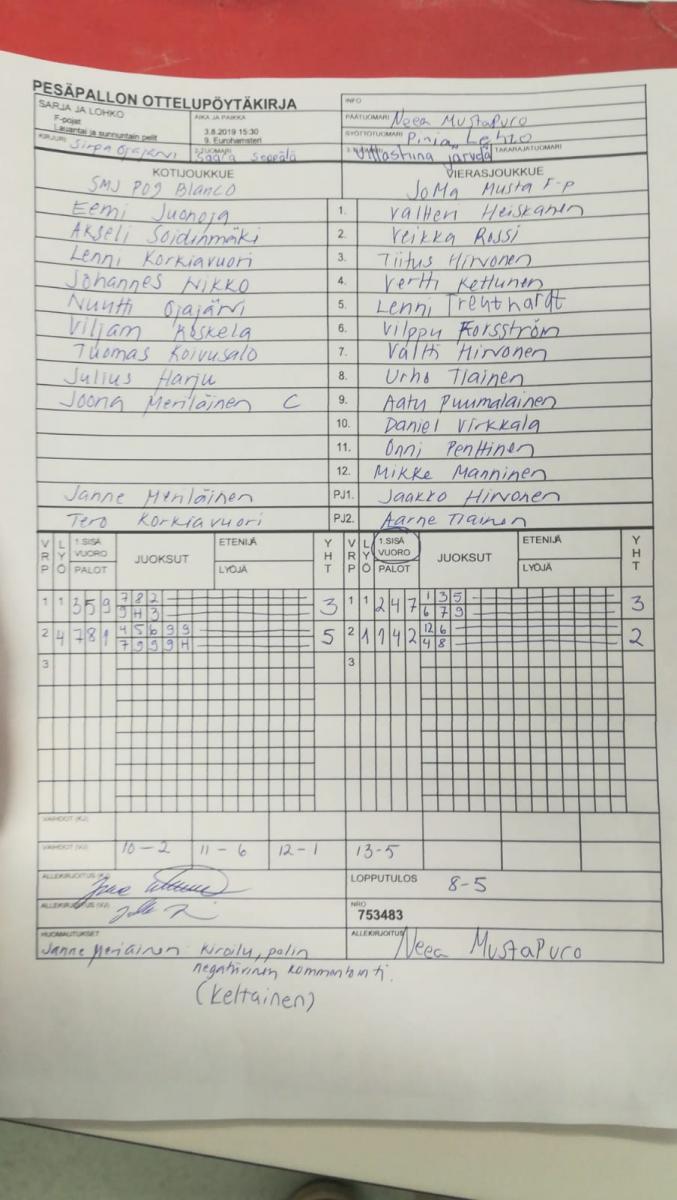 PESÄPALLON OTTELUPÖYTÄKIRJA
INFO
SARJA JA LOHKO
F-pojat
Lauantai ja sunnuntain pelit
AIKA JA PAIKKA
3.8.2019 15:30
9. Eurohamsteri
PÄÄTUOMARI Neea Mustapuro
SYÖTTÖTUOMARI Pinja Lehto
KIRJURI Sirpa Ojajärvi
2-TUOMARI Saara Seppälä
TAKARAJATUOMARI
KOTIJOUKKUE VIERASJOUKKUE
SMJ P09 Blanco JoMa Musta F-p
Eemi Juonoja 1. Valtteri Heiskanen
Akseli Soidinmäki 2. Veikka Rossi
Lenni Korkiavuori 3. Tiitus Hirvonen
Johannes Nikko 4. Vertti Kettunen
Nuutti Ojajärvi 5. Lenni Trenthardt
Viljam Koskela 6. Vilppu Forsström
Tuomas Koivusalo 7. Valtti Hirvonen
Julius Harju 8. Urho Tiainen
Joona Meriläinen C 9. Aatu Puumalainen
10. Daniel Virkkala
11. Onni Penttinen
12. Mikke Manninen
Janne Meriläinen PJ1. Jaakko Hirvonen
Tero Korkiavuori PJ2. Aarne Tiainen
VRP LYÖ 1.SISÄ VUORO PALOT JUOKSUT ETENIJÄ LYÖJÄ YHT VRP LYÖ 1.SISÄ VUORO PALOT JUOKSUT ETENIJÄ LYÖJÄ YHT
1 1 3 5 9 7 8 2 3 1 1 2 4 7 1 3 5 3
9 H 3 6 7 9
2 4 7 8 1 4 5 6 9 9 5 2 1 1 4 2 12 6 2
7 9 9 9 H 4 8
3 3
VAIHDOT (KJ)
VAIHDOT (VJ) 10-2 11-6 12-1 13-5
ALLEKIRJOITUS (KJ)
LOPPUTULOS 8-5
ALLEKIRJOITUS (VJ)
NRO
753483
HUOMAUTUKSET
Janne Meriäinen: Kiroilu, pelin
negatiivinen kommentointi.
(Keltainen)
ALLEKIRJOITUS Neea Mustapuro